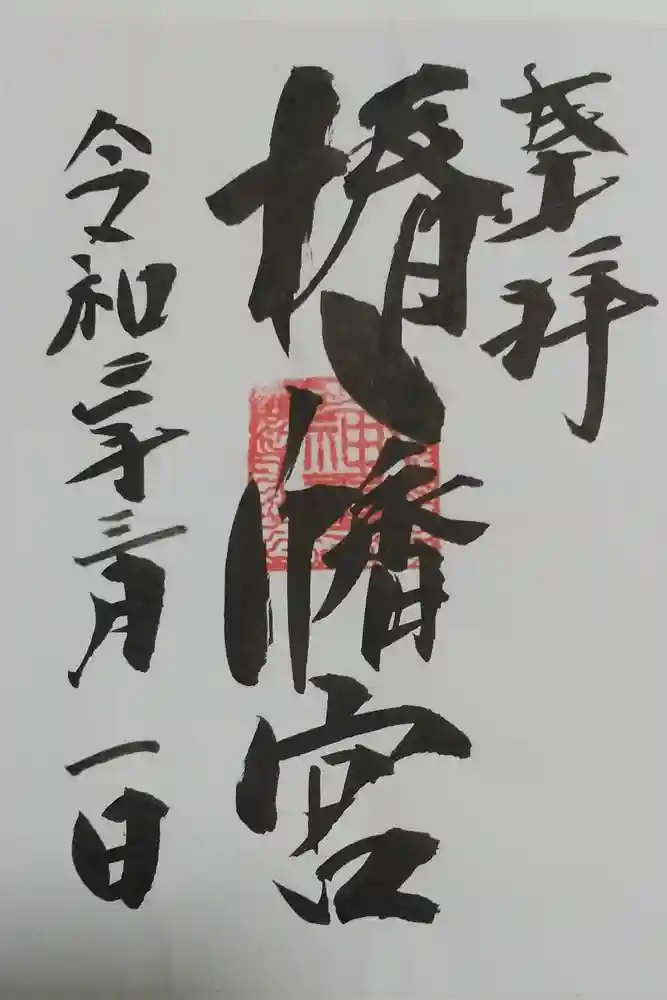 奉拝
椿八幡宮
令和二年三月
一日